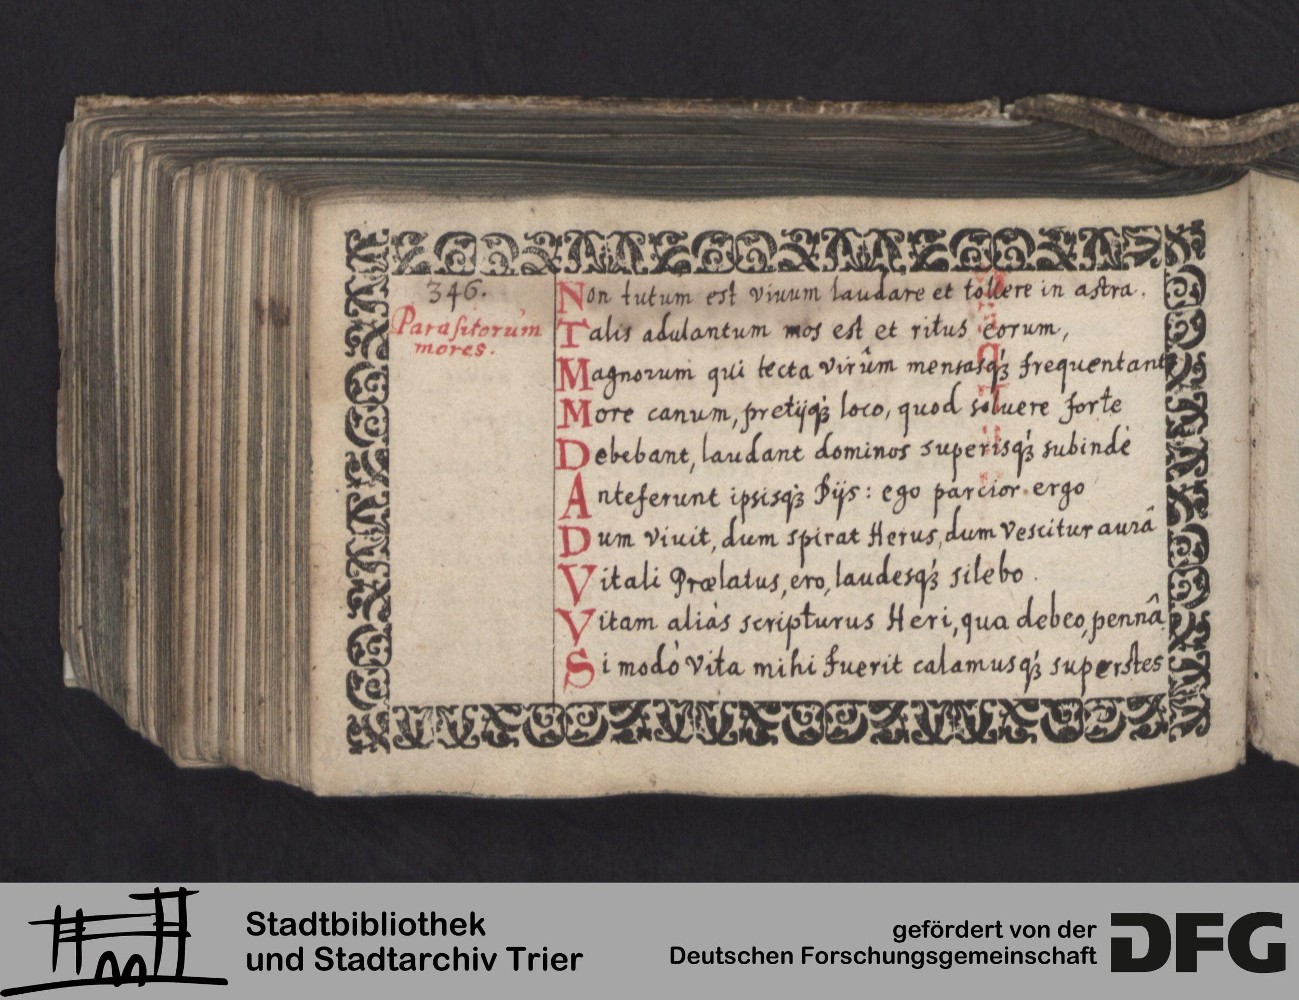 346.
Parasitorum
mores.
Non tutum est viuum laudare et tollere in astra.
Talis adulantum mos est et ritus eorum,
Magnorum qui tecta virûm mensasq́; frequentant
More canum, pretijq́; loco, quod soluere forte
Debebant, laudant dominos superisq́; subindè
Anteferunt ipsisq́; Dijs: ego parcior ergo
Dum viuit, dum spirat Herus, dum vescitur aurâ
Vitali Prælatus, ero, laudesq́; silebo.
Vitam aliàs scripturus Heri, qua debeo, pennâ
Si modò vita mihi fuerit calamusq́; superstes
Stadtbibliothek
und Stadtarchiv Trier
gefördert von der
Deutschen Forschungsgemeinschaft
DFG